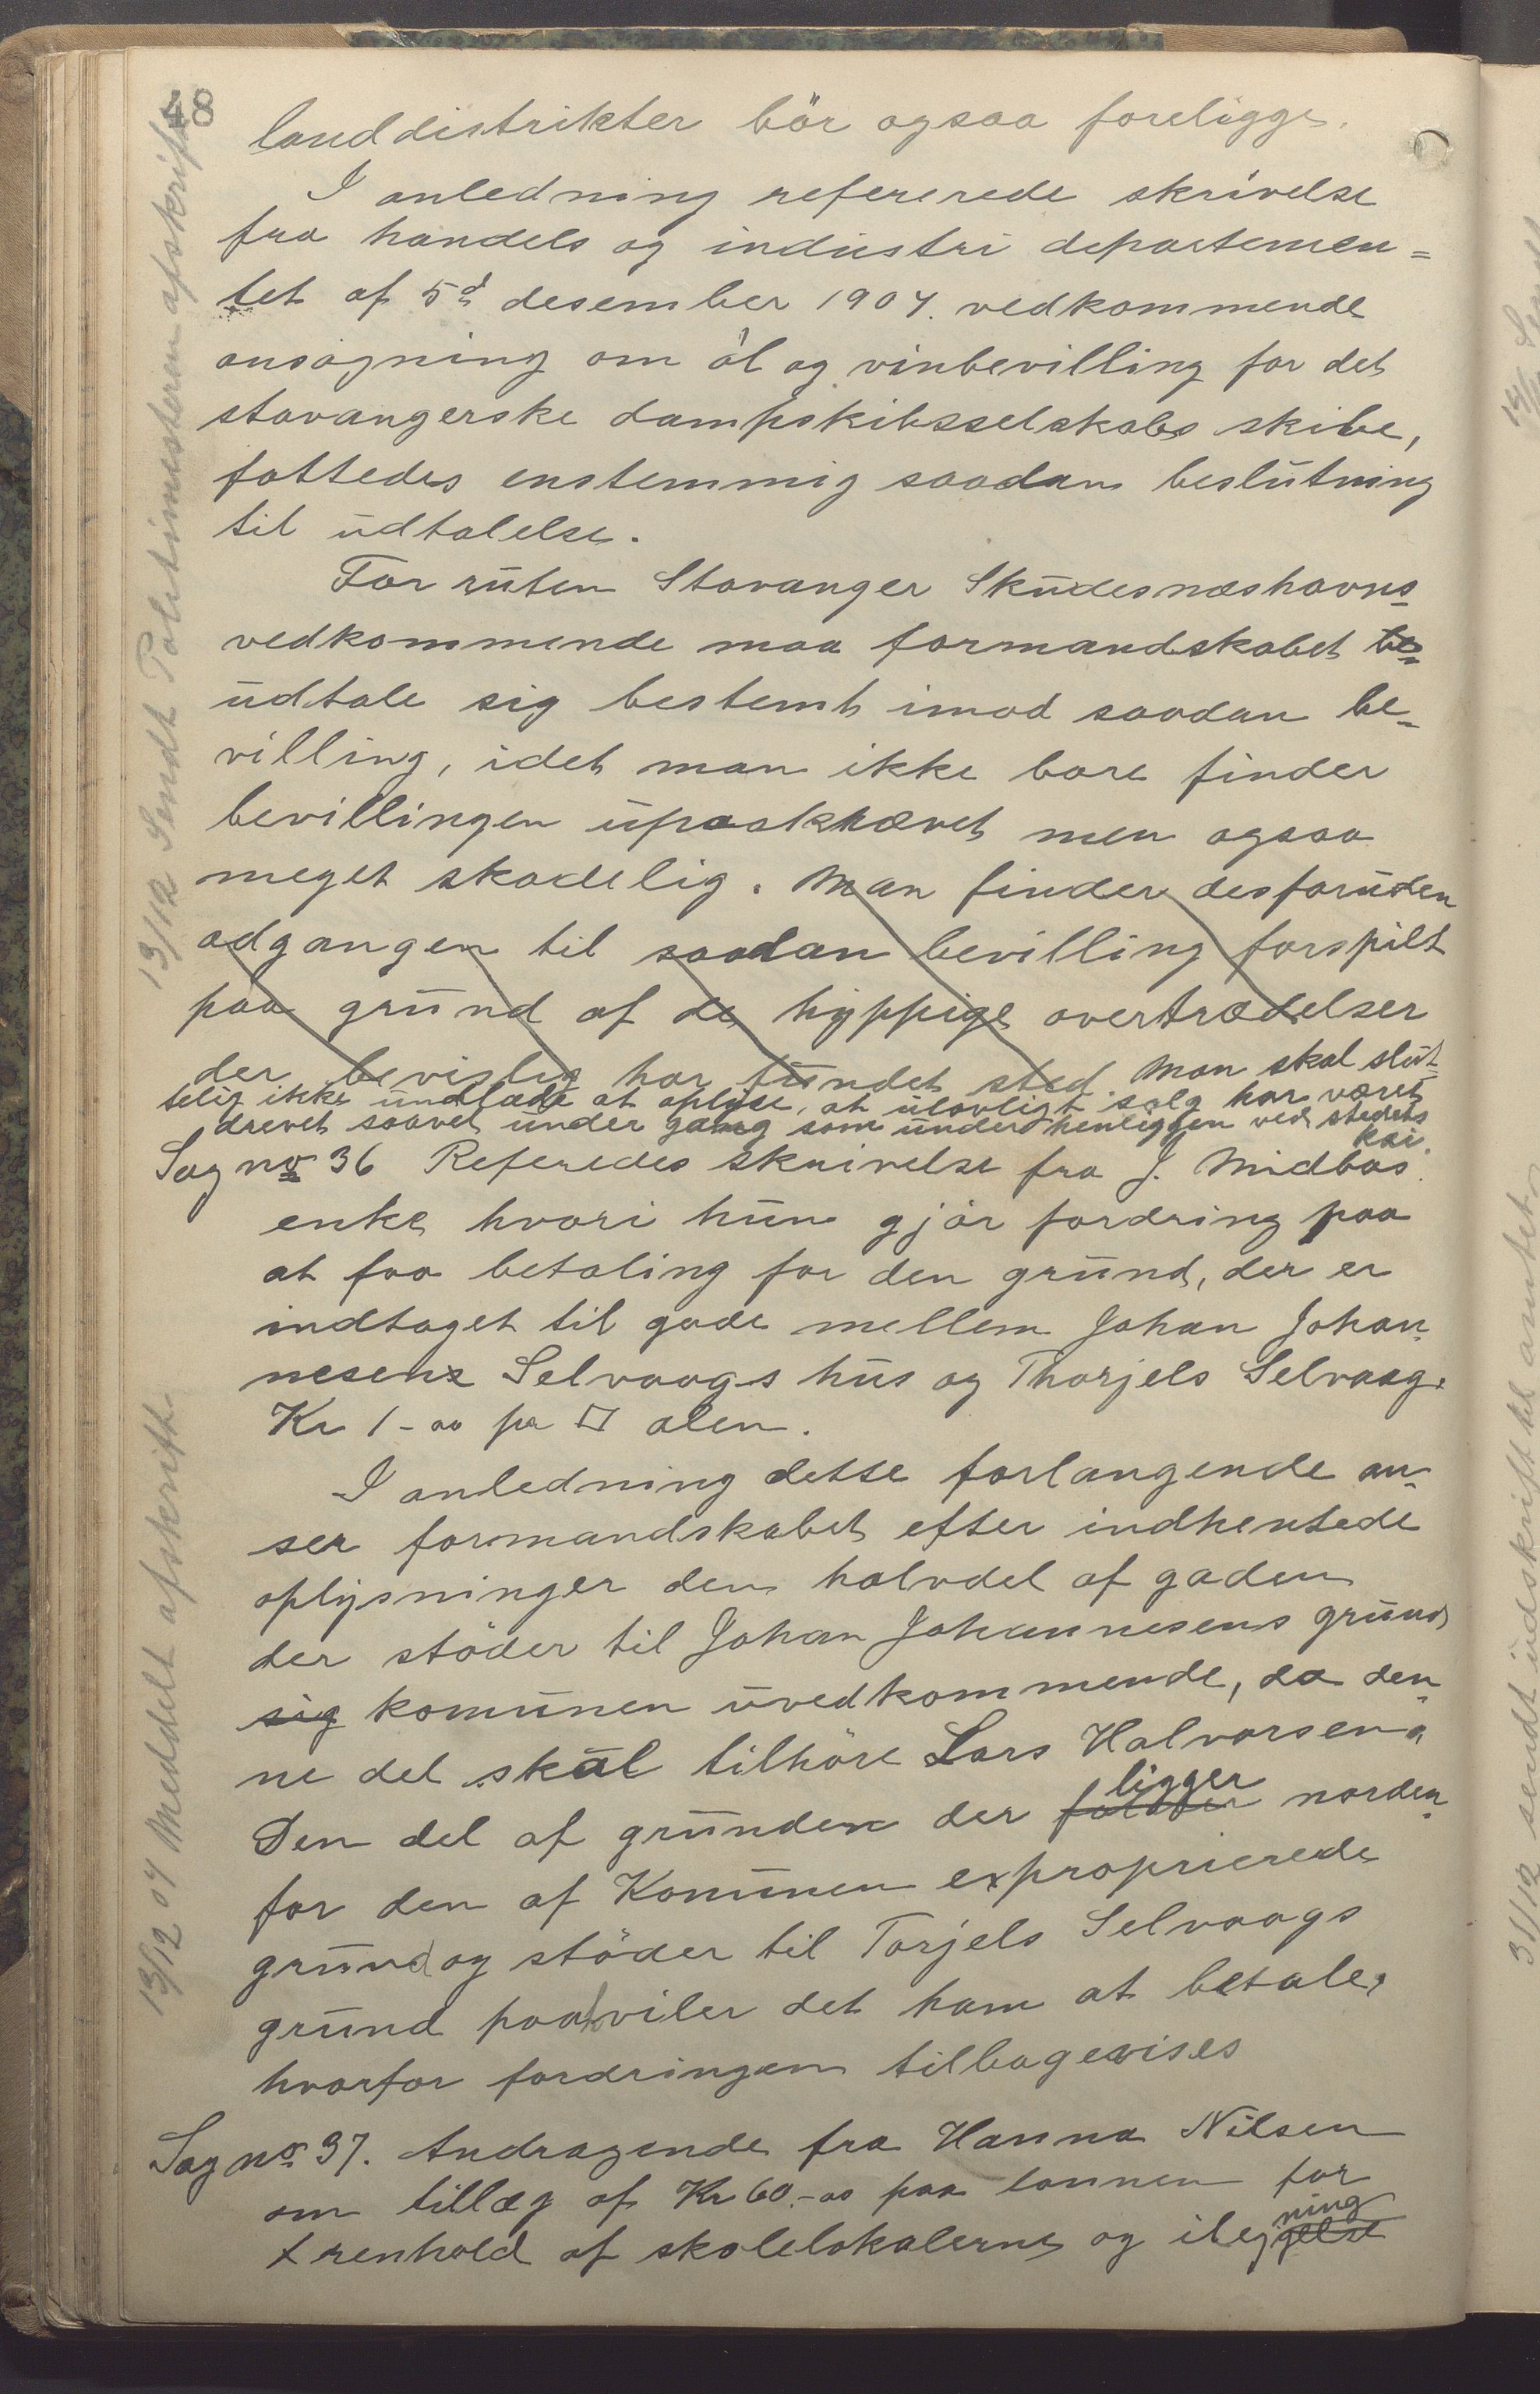 48
landdistrikter bör ogsaa foreligge.
I anledning refererede skrivelse
fra handels og industri departemen=
tet af 5d desember 1907. vedkommende
ansøgning om öl og vinbevilling for det
stavangerske dampskibsselskabs skibe,
fattedes enstemmig saadan beslutning
til udtalelse.
For ruten Stavanger Skudesnæshavns
vedkommende maa formandskabet be-
udtale sig bestemt imod saadan be-
villing, idet man ikke bare finder
bevillingen upaaskrævet men ogsaa
meget skadelig. Man finder desforuden
adgangen til saadan bevilling forspilt
paa grund af de hyppige overtrædelser
der bevislig har fundet sted. Man skal slut-
telig ikke undlade at oplyse, at ulovligt salg har været
drevet saavel under gang som under henliggen ved stedets
kai.
Sag no 36 Referedes skrivelse fra J. Midbøs
enke hvori hun gjör fordring paa
at faa betaling for den grund, der er
indtaget til gade mellem Johan Johan-
nesens Selvaags hus og Thorjels Selvaag.
Kr 1-00 pr □ alen.
I anledning dette forlangende an-
ser formandskabet efter indhentede
oplysninger den halvdel af gaden
der stöder til Johan Johannesens grund
sig komunen uvedkommende, da den-
ne del skal tilhöre Lars Halvorsen.
ligger
Den del af grunden der falder norden-
for den af Komunen exproprierede
grund og stöder til Torjels Selvaags
grund paahviler det ham at betale,
hvorfor fordringen tilbagevises
Sag no 37. Andragende fra Hanna Nilsen
om tillæg af Kr 60.-00 paa lønnen for
ning
t renhold af skolelokalerne og ileggelse
13/12 Sendt Politimesteren afskrift
13/12 07 Meddelt afskrift
31/12 sendt udskrift til amtet